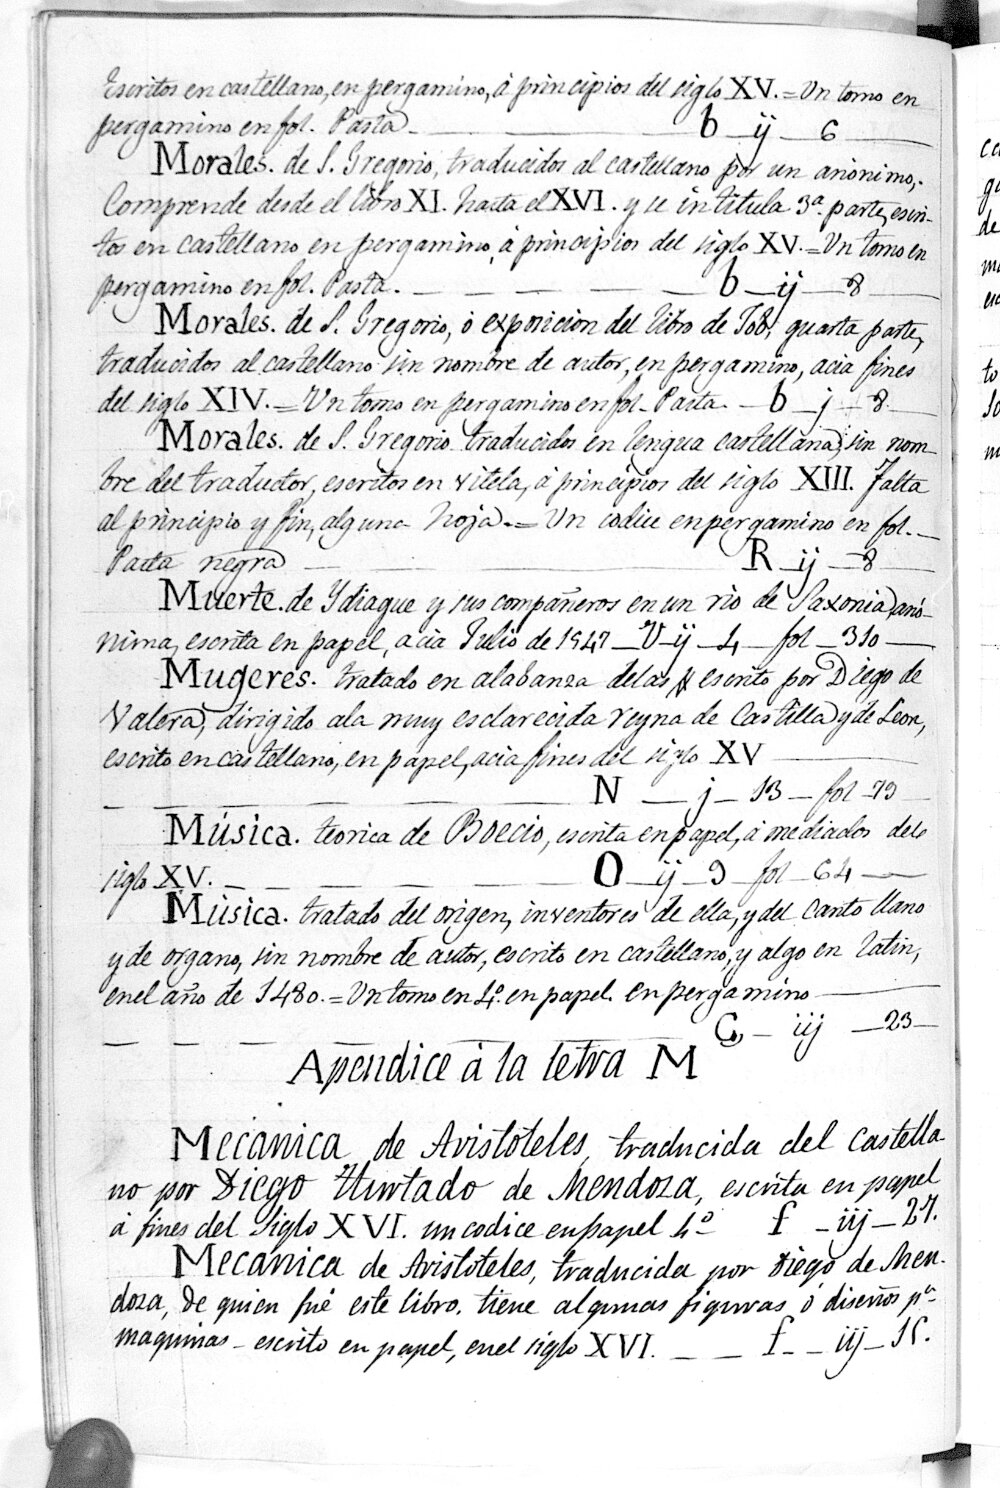 Escritos en castellano, en pergamino, á principios del siglo XV. = Un tomo en
pergamino en fol. Pasta. b ij 6
Morales. de S. Gregorio, traducidos al castellano por un anonimo,.
Comprende desde el libro XI. hasta el XVI. y se intitula 3ª. parte, escri-
tos en castellano en pergamino, á principios del siglo XV. = Un tomo en
pergamino en fol. Pasta. b ij 8
Morales. de S. Gregorio, ó exposicion del libro de Job, quarta parte,
traducidos al castellano sin nombre de autor, en pergamino, acia fines
del siglo XIV. = Un tomo en pergamino en fol. Pasta. b j 8.
Morales. de S. Gregorio traducidos en lengua castellana, sin nom-
bre del traductor, escritos en vitela, á principios del siglo XIII. Falta
al principio y fin, alguna hoja. = Un codice en pergamino en fol.
Pasta negra R ij 8
Muerte. de Ydiaque y sus compañeros en un rio de Saxonia, anó-
nima, escrita en papel, acia Julio de 1547 V ij 4 fol 310
Mugeres. tratado en alabanza de las, escrito por Diego de
Valera, dirigido a la muy esclarecida reyna de Castilla y de Leon,
escrito en castellano, en papel, acia fines del siglo XV
N j 13 fol 79
Música. teorica de Boecio, escrita en papel, á mediados del
siglo XV. O ij 9 fol 64
Música. tratado del origen, inventores de ella, y del canto llano
y de organo, sin nombre de autor, escrito en castellano, y algo en latin,
en el año de 1480. = Un tomo en 4º. en papel. en pergamino
C iij 23
Apendice á la letra M
Mecanica de Aristoteles, traducida del castella-
no por Diego Hurtado de Mendoza, escrita en papel
á fines del siglo XVI. un codice en papel 4º f iij 27.
Mecanica de Aristoteles, traducida por Diego de Men-
doza, de quien fué este libro. tiene algunas figuras ó diseños pª
maquinas - escrito en papel, en el siglo XVI. f iij 15.